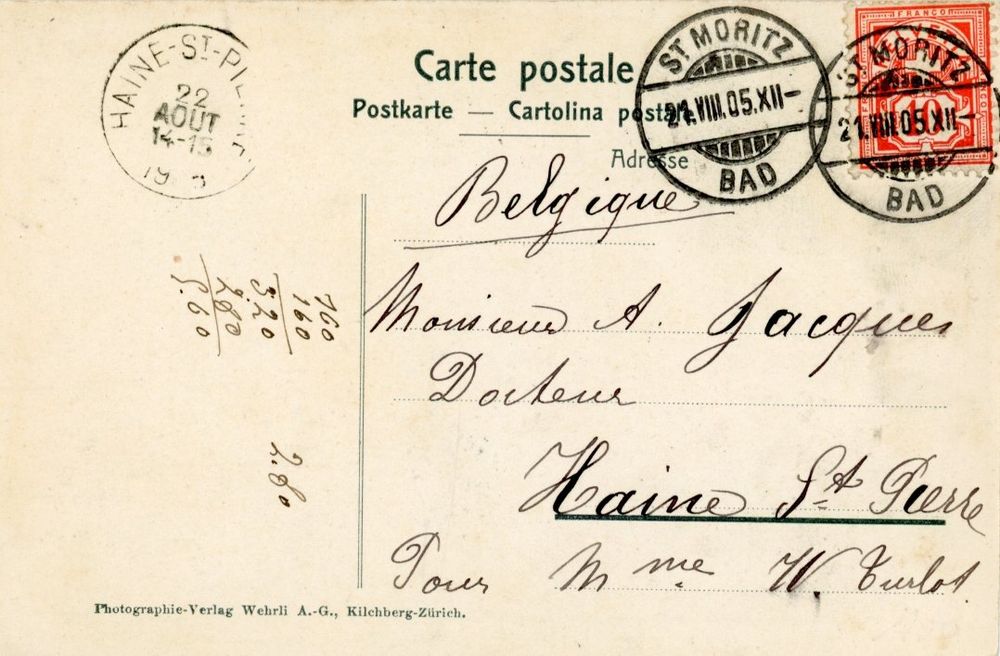 HAINE-ST-PIE
22
AOÛT
14-15
Carte postale
Postkarte — Cartolina postale
Adresse
ST MORITZ
21.VIII.05.XII-
BAD
FRANCO
10
ST MORITZ
21.VIII.05.XII-
BAD
Belgique
Monsieur A. Jacques
Docteur
Haine St Pierre
Pour Mme W. Turlot
160
3.20
2.80
5.60
2.80
Photographie-Verlag Wehrli A.-G., Kilchberg-Zürich.